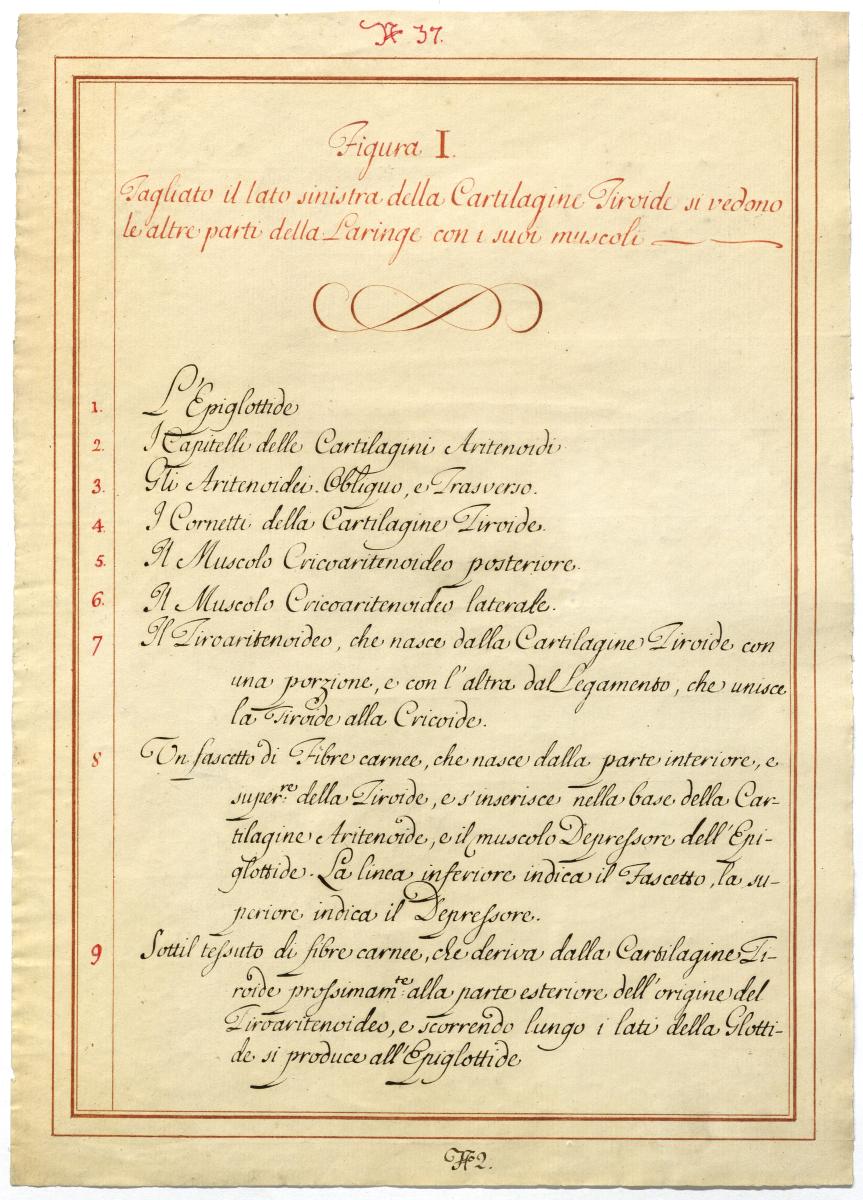 N 37.
Figura I.
Tagliato il lato sinistra della Cartilagine Tiroide si vedono
le altre parti della Laringe con i suoi muscoli
1. L'Epiglottide
2. I Capitelli delle Cartilagini Aritenoidi
3. Gli Aritenoidei. Obliguo, e Trasverso.
4. I Cornetti della Cartilagine Tiroide.
5. Il Muscolo Cricoaritenoideo posteriore.
6. Il Muscolo Cricoaritenoideo laterale.
7 Il Tiroaritenoideo, che nasce dalla Cartilagine Tiroide con
una porzione, e con l'altra dal Legamento, che unisce
la Tiroide alla Cricoide.
8 Un fascetto di Fibre carnee, che nasce dalla parte interiore, e
super.re della Tiroide, e s'inserisce nella base della Car-
tilagine Aritenoide, e il muscolo Depressore dell'Epi-
glottide. La linea inferiore indica il Fascetto, la su-
periore indica il Depressore.
9 Sottil tessuto di fibre carnee, che deriva dalla Cartilagine Ti-
roide prossimam.te alla parte esteriore dell'origine del
Tiroaritenoideo, e scorrendo lungo i lati della Glotti-
de si produce all'Epiglottide
N 2.